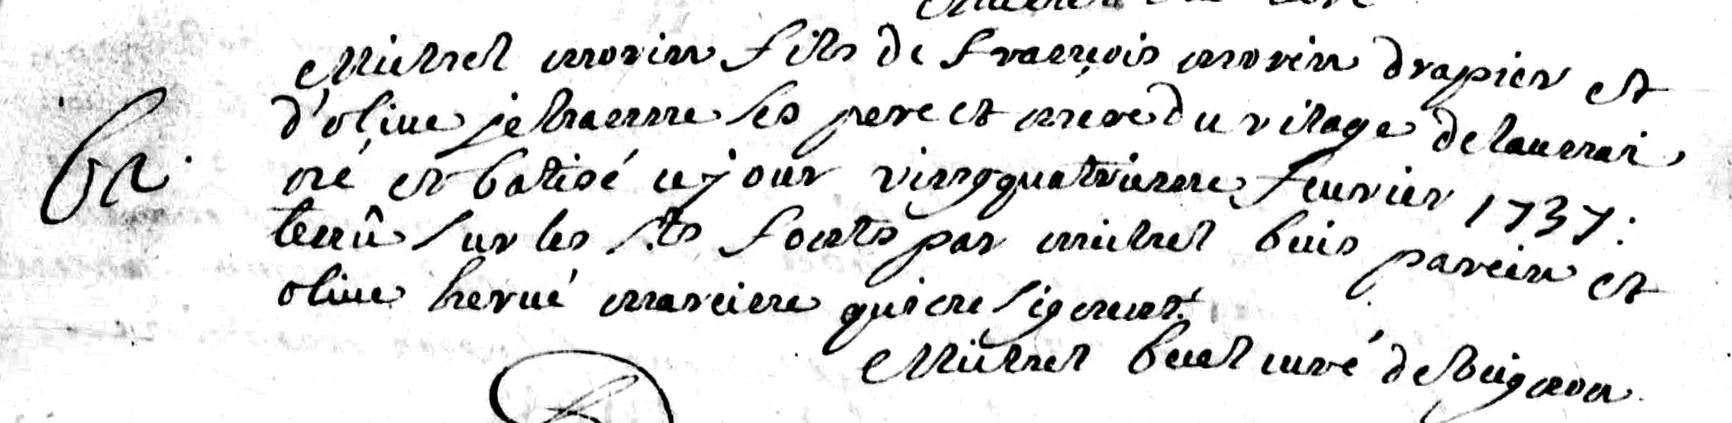 Michel morin fils de françois morin drapier et
d'oliue jehanne ses pere et mere du vilage de launai
né et batisé ce jour vingquatrieme feurier 1737:
ba.
tenû sur les sts fonts par michel buis parein et
oliue herué mareine qui ne signent
Michel buel curé de